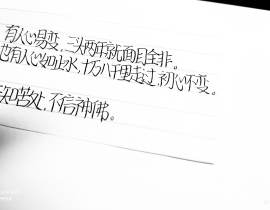 有人心易变，三头两年就面目全非。
也有人心如止水，十万八千里走过，初心不变。
未知苦处，不信神佛。